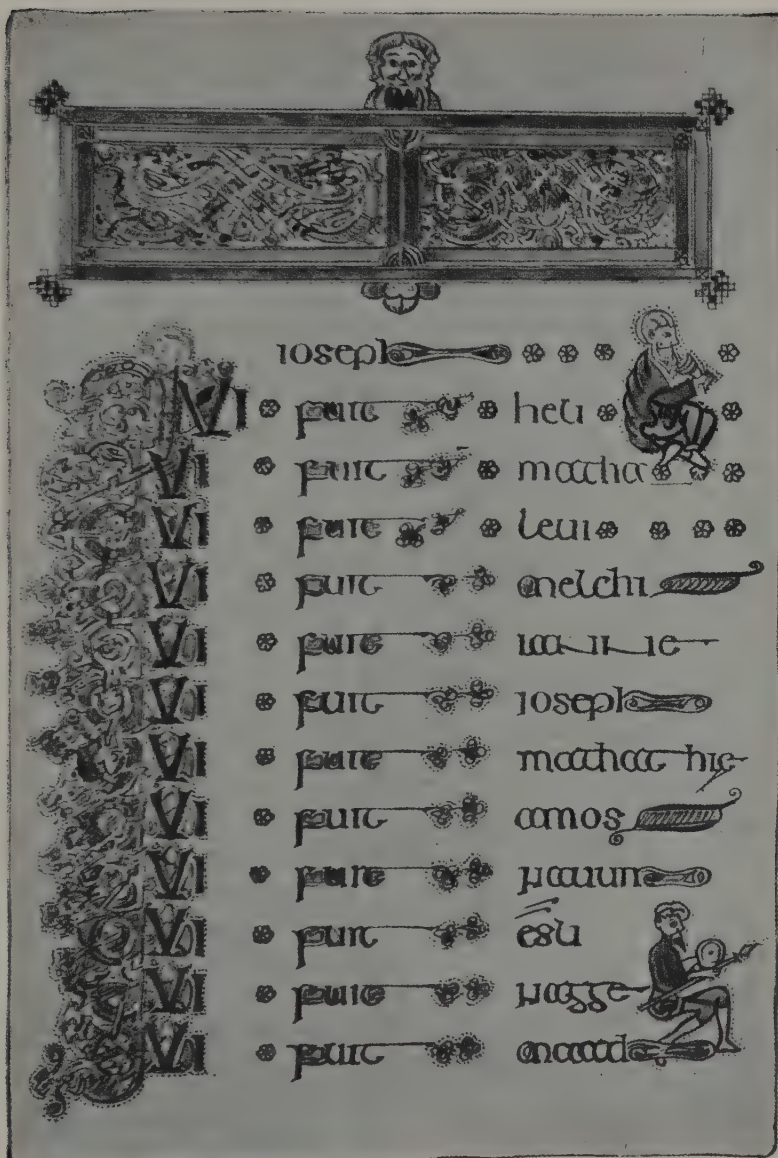 ioseph
QUI fuit heli
QUI fuit matha
QUI fuit leui
QUI fuit melchi
QUI fuit ianne
QUI fuit ioseph
QUI fuit mathathie
QUI fuit amos
QUI fuit nauum
QUI fuit esli
QUI fuit nagge
QUI fuit maad